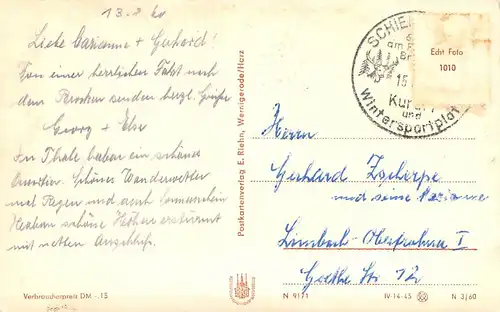 13.8.60
Liebe Marianne + Gerhard!
Von einer herrlichen Fahrt nach
dem Brocken senden herzl. Grüße
Georg + Else
In Thale haben ein schönes
Quartier. Schönes Wanderwetter
mal Regen und auch Sonnenschein
Haben schöne Höhen erstürmt
mit netten Anschluß.
Verbraucherpreis DM -.15
Postkartenverlag E. Riehn, Wernigerode/Harz
SCHIE
am
Br
15
Kurort
und
Wintersportplatz
Echt Foto
1010
Herrn
Gerhard Zscherpe
und seine Mariane
Limbach-Oberfrohna I
Goethe Str 12
N 9171
IV-14-45
N 3/60